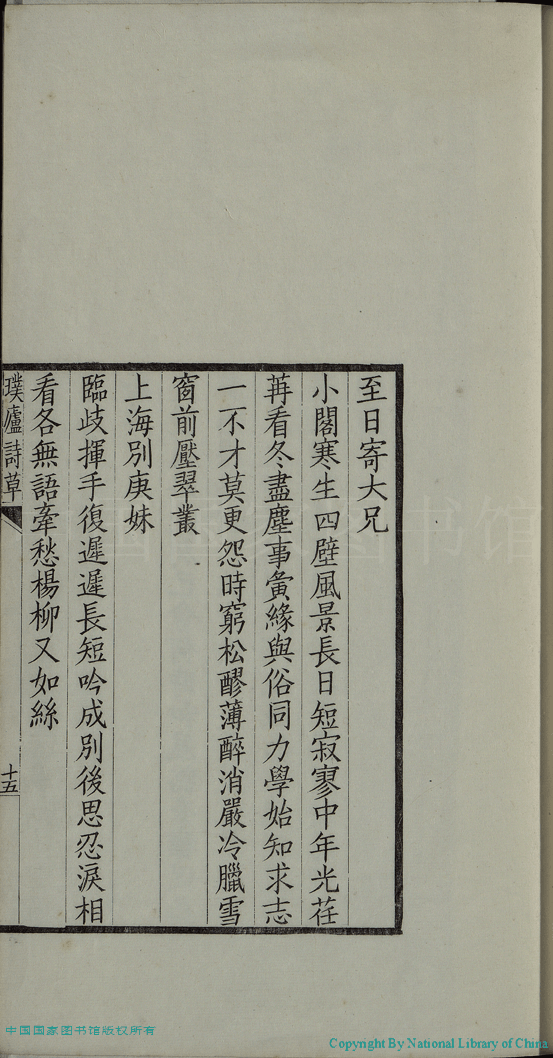 至日寄大兄
小閣寒生四壁風景長日短寂寥中年光荏
苒看冬盡塵事夤緣與俗同力學始知求志
一不才莫更怨時窮松醪薄醉消嚴冷臘雪
窗前壓翠叢
上海別庚妹
臨歧揮手復遲遲長短吟成別後思忍淚相
看各無語牽愁楊柳又如絲
璞廬詩草
十五
中国国家图书馆版权所有
Copyright By National Library of China